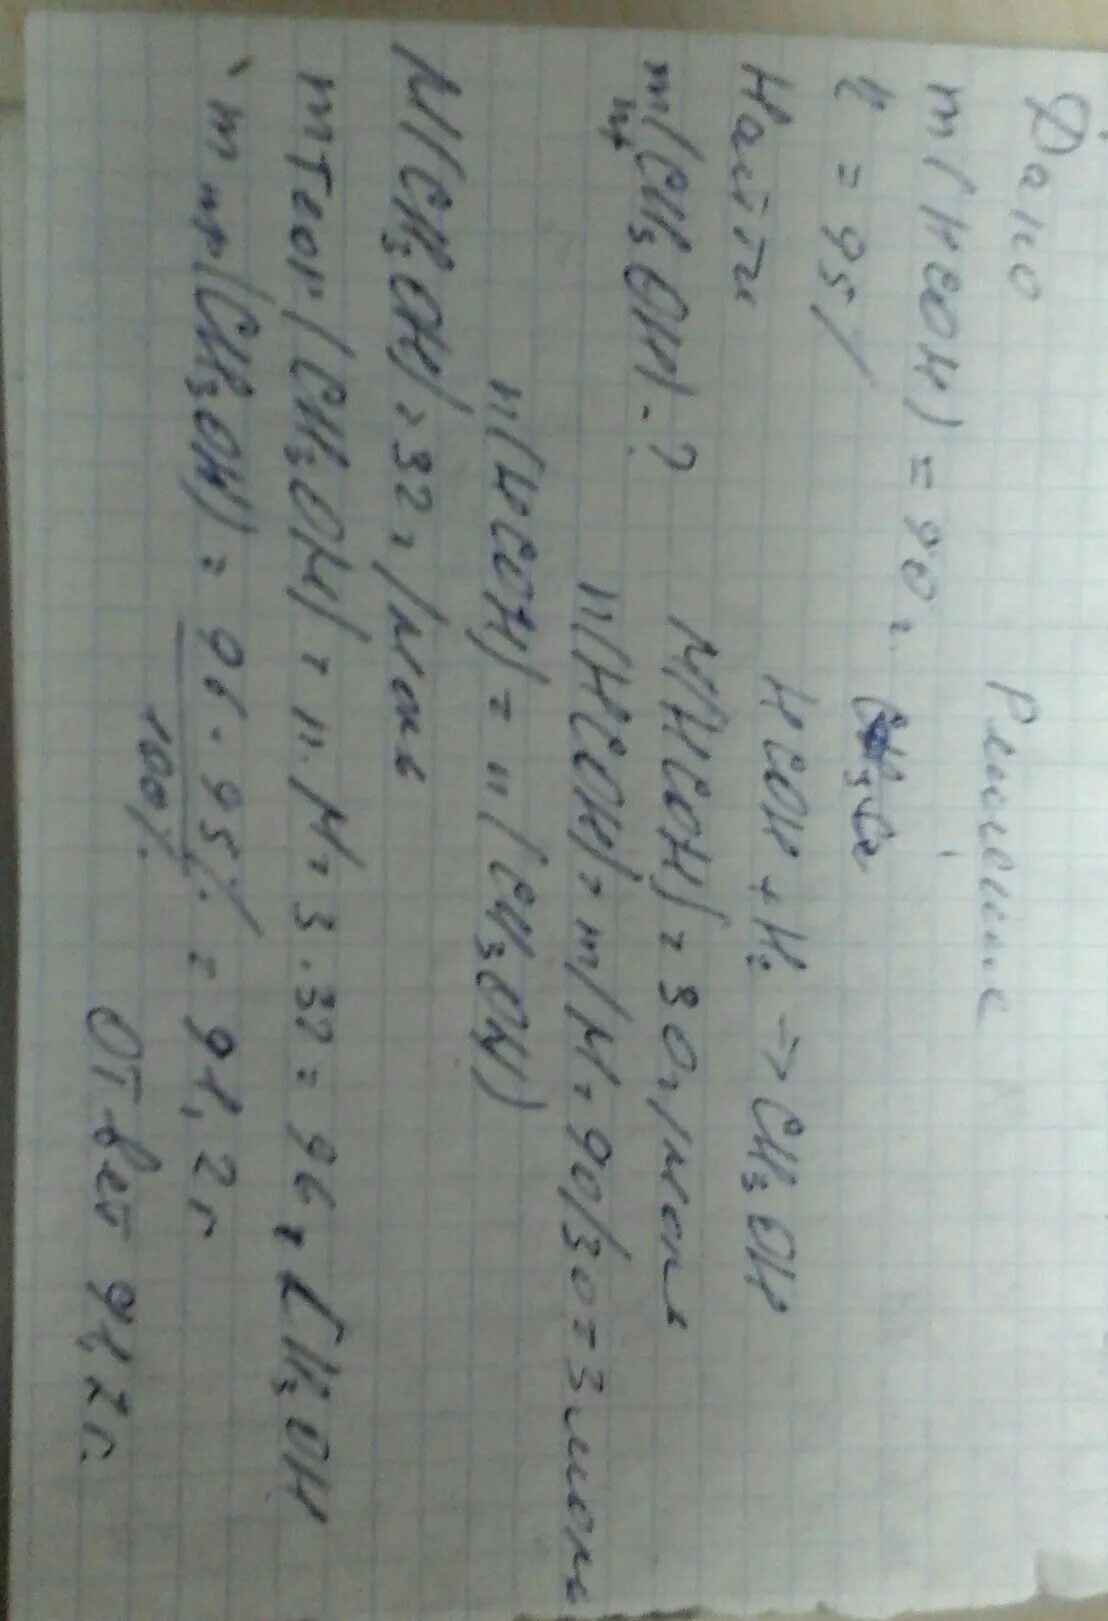 Дано
Решение
m(HCOH) = 90г
η = 95%
Найти
HCOH + H₂ → CH₃OH
mпр(CH₃OH) - ?
M(HCOH) = 30г/моль
n(HCOH) = m/M = 90/30 = 3 моль
n(HCOH) = n(CH₃OH)
M(CH₃OH) = 32г/моль
mтеор(CH₃OH) = n·M = 3·32 = 96г CH₃OH
mпр(CH₃OH) = 96·95% / 100% = 91,2г
Ответ 91,2г.